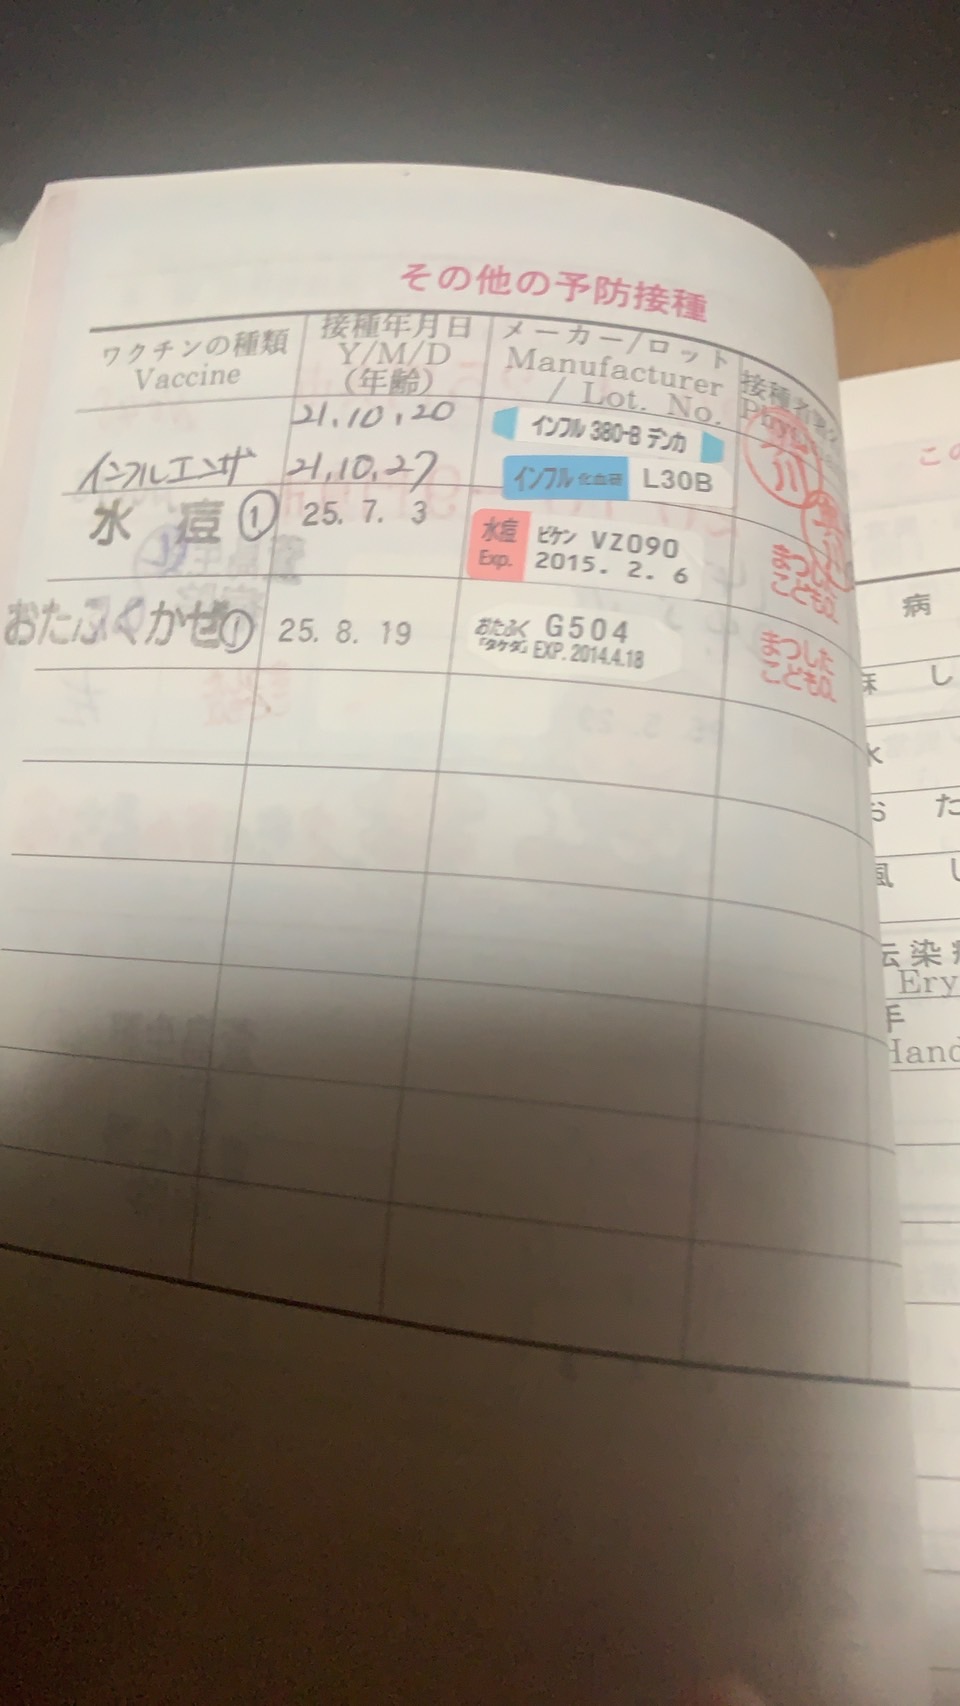 その他の予防接種
ワクチンの種類
Vaccine
接種年月日
Y/M/D
(年齢)
メーカー/ロット
Manufacturer
/ Lot. No.
接種
21.10.20
インフル 380-B デンカ
インフルエンザ
21.10.27
インフル 化血研 L30B
川
水痘①
25. 7. 3
水痘 ビケン VZ090
Exp. 2015. 2. 6
まつした
こどもCL
おたふくかぜ①
25. 8. 19
おたふく G504
「タケダ」 EXP. 2014.4.18
まつした
こどもCL
この
病
し
水
おた
風し
伝染
Ery
手
Hand